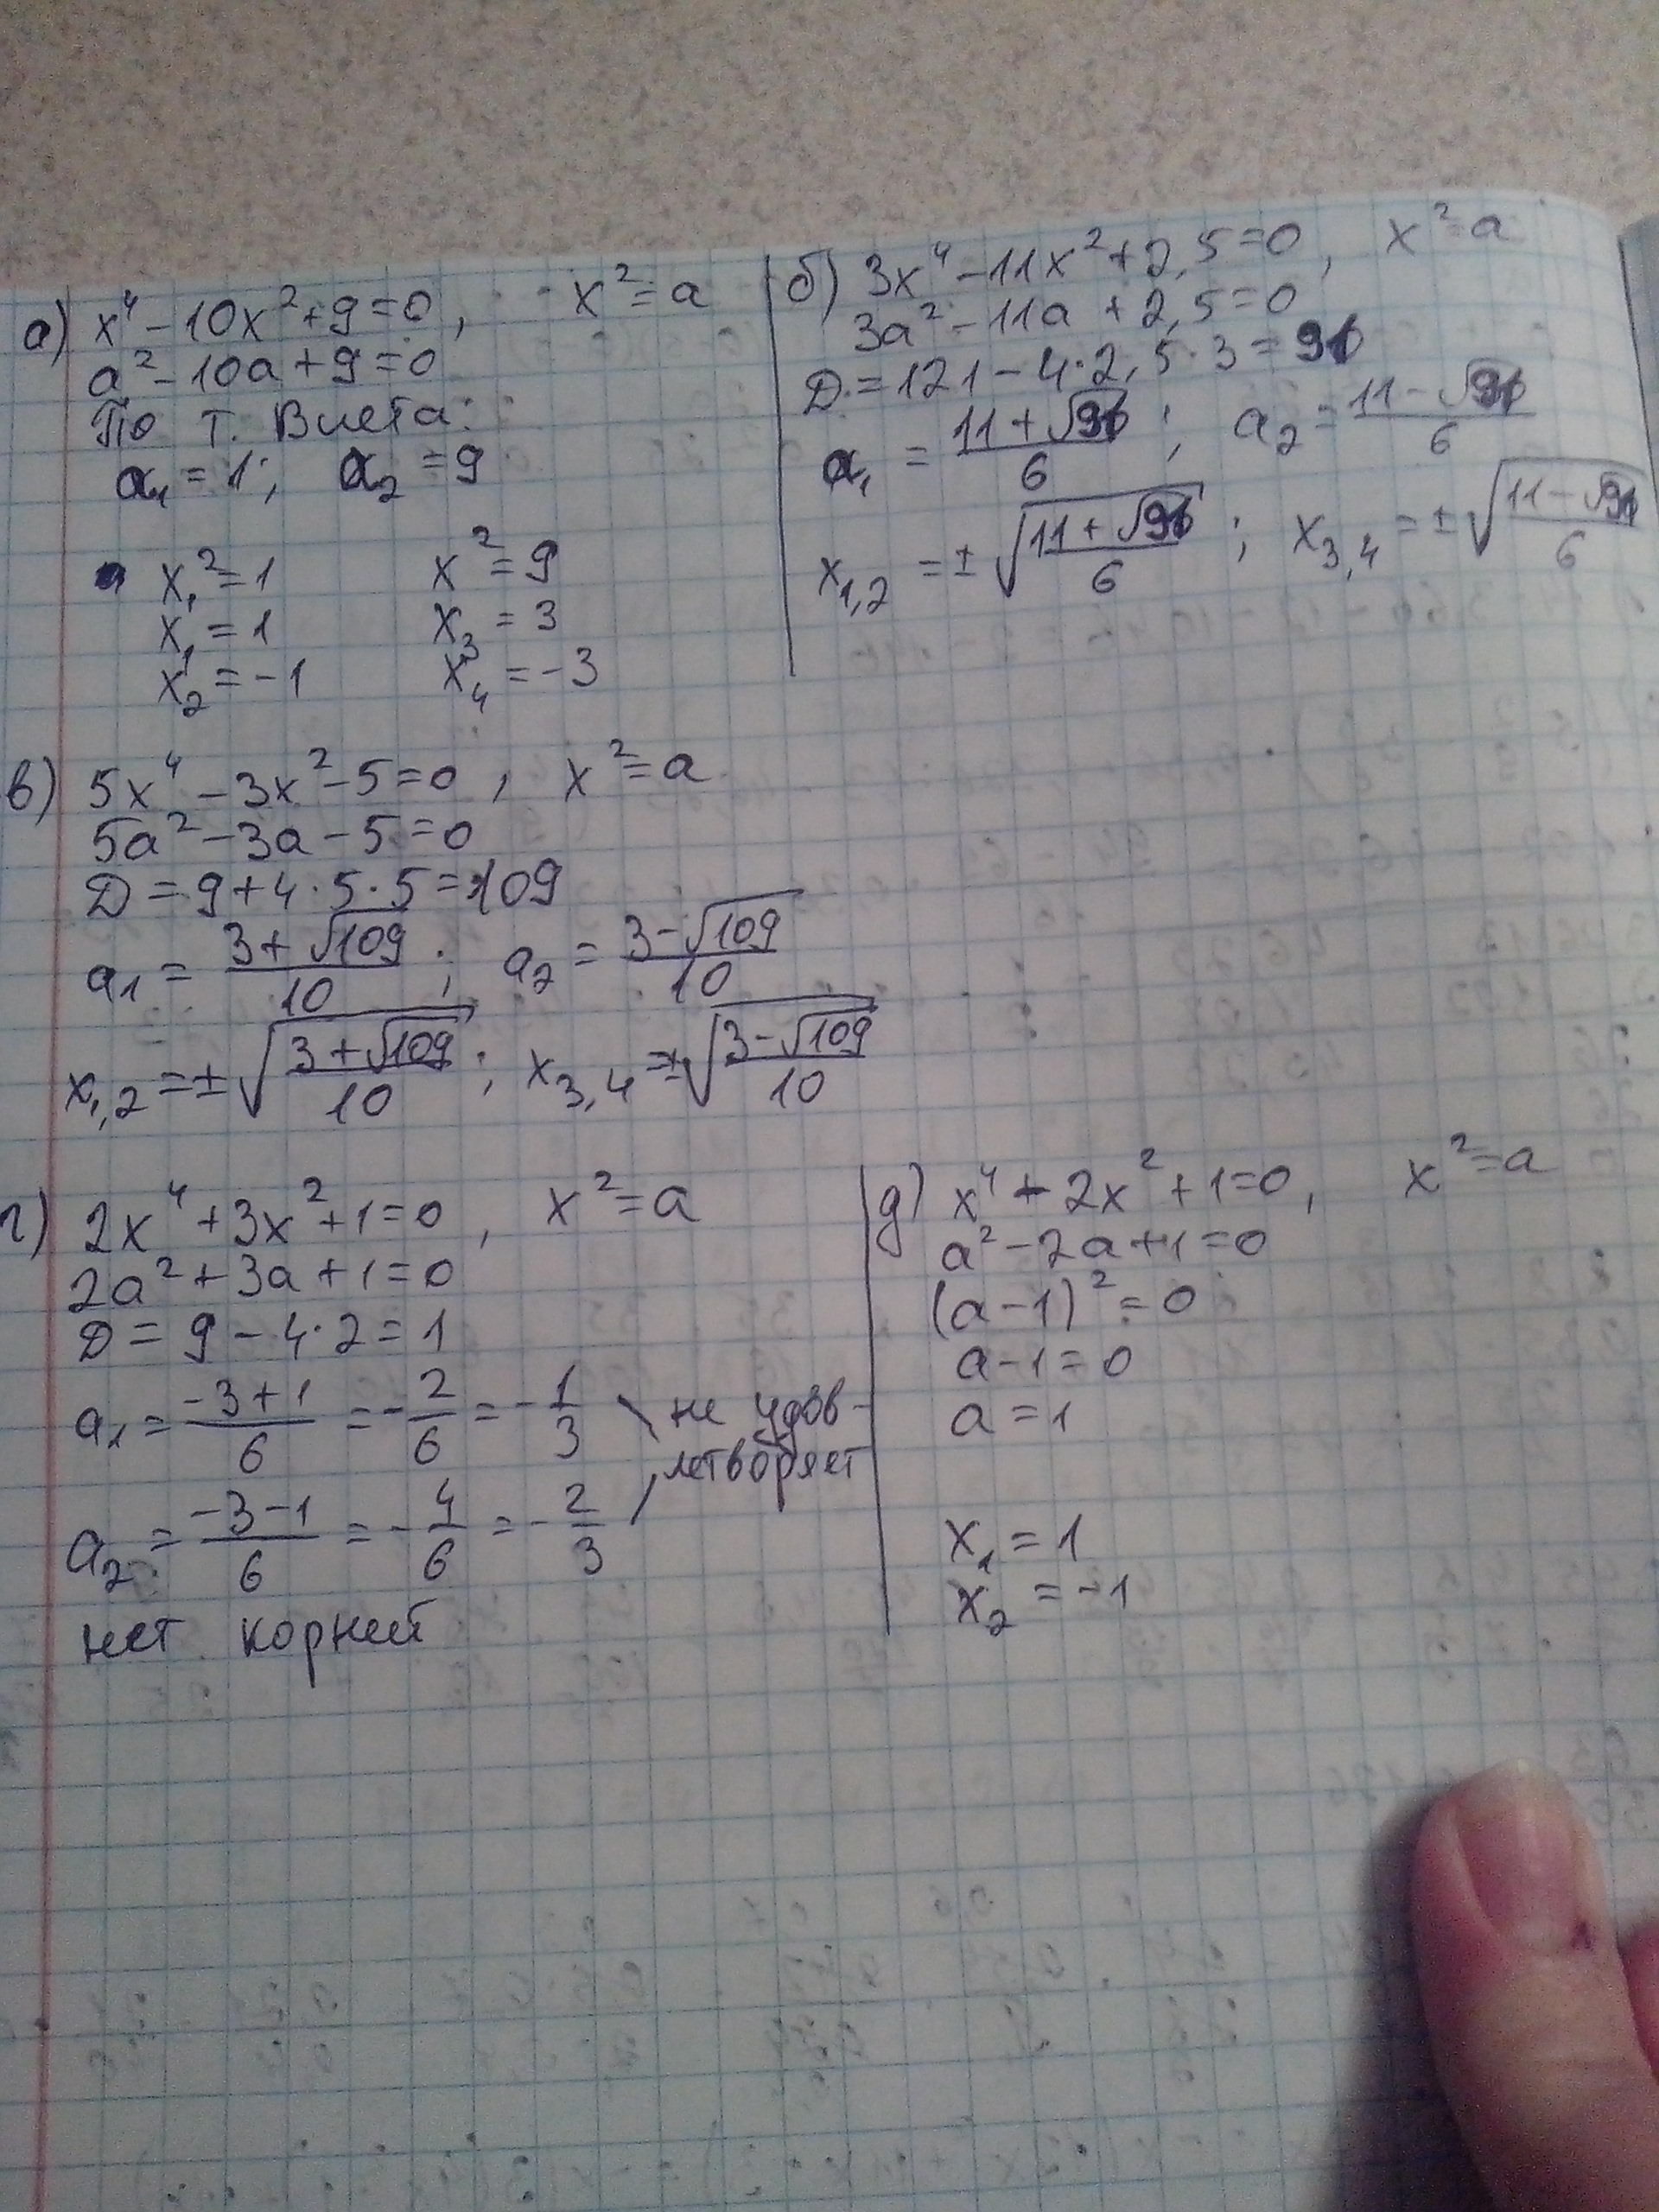 а) x⁴ - 10x² + 9 = 0, x² = a
a² - 10a + 9 = 0
По т. Виета:
a₁ = 1; a₂ = 9
x₁² = 1 x² = 9
x₁ = 1 x₃ = 3
x₂ = -1 x₄ = -3
б) 3x⁴ - 11x² + 2,5 = 0, x² = a
3a² - 11a + 2,5 = 0
D = 121 - 4·2,5·3 = 91
a₁ = (11 + √91)/6; a₂ = (11 - √91)/6
x₁,₂ = ±√((11 + √91)/6); x₃,₄ = ±√((11 - √91)/6)
в) 5x⁴ - 3x² - 5 = 0, x² = a
5a² - 3a - 5 = 0
D = 9 + 4·5·5 = 109
a₁ = (3 + √109)/10; a₂ = (3 - √109)/10
x₁,₂ = ±√((3 + √109)/10); x₃,₄ = ±√((3 - √109)/10)
г) 2x⁴ + 3x² + 1 = 0, x² = a
2a² + 3a + 1 = 0
D = 9 - 4·2 = 1
a₁ = (-3 + 1)/6 = -2/6 = -1/3 не удов-
летворяет
a₂ = (-3 - 1)/6 = -4/6 = -2/3
нет корней
д) x⁴ - 2x² + 1 = 0, x² = a
a² - 2a + 1 = 0
(a - 1)² = 0
a - 1 = 0
a = 1
x₁ = 1
x₂ = -1